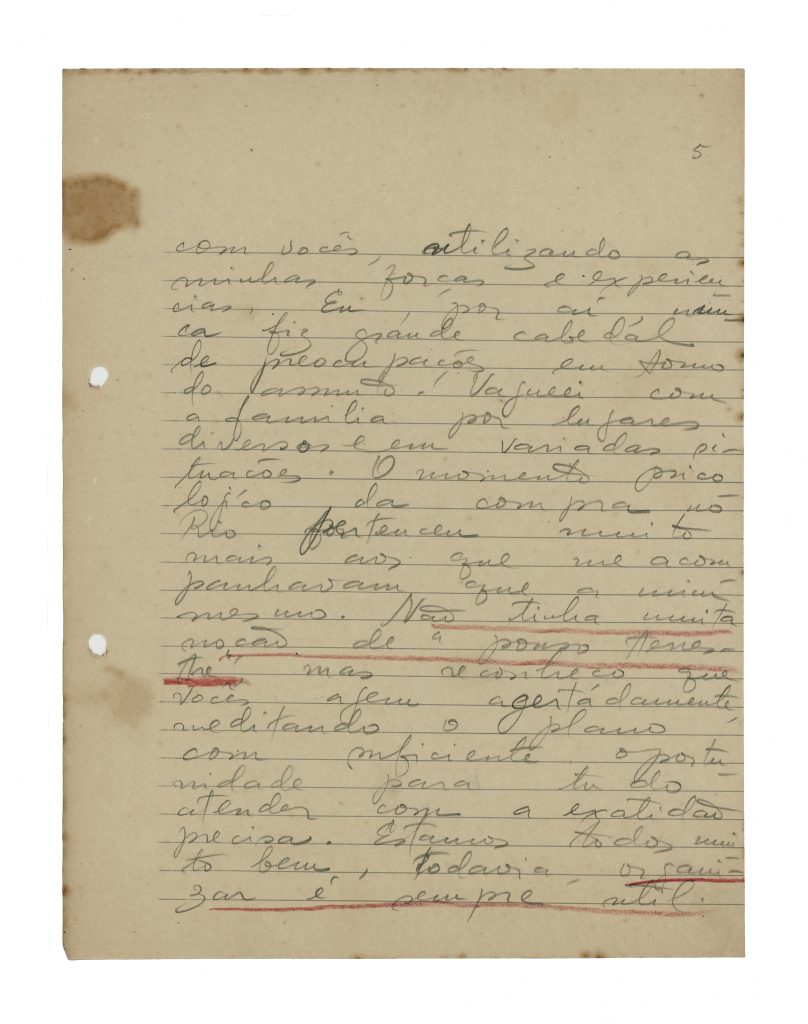 5
com vocês, utilizando as
minhas forças e experiên
cias. Eu, por aí, nun-
ca fiz grande cabedál
de preocupações em torno
do assunto. Vaguei com
a familia por lugares
diversos e em variadas si-
tuações. O momento psico
logíco da compra nó
Rio pertenceu muito
mais aos que me acom
panhavam que a mim
mesmo. Não tinha muita
noção de "pouso terres-
tre", mas reconheço que
vocês agem acertádamente,
meditando o plano
com suficiente oportu-
nidade para tudo
atender com a exatidão
precisa. Estamos todos mui
to bem, todavia, organi-
zar é sempre util.